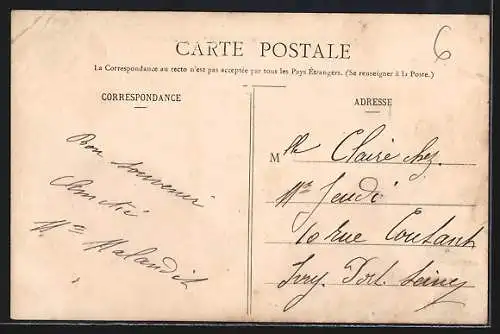 CARTE POSTALE
6
La Correspondance au recto n'est pas acceptée par tous les Pays Étrangers. (Se renseigner à la Poste.)
CORRESPONDANCE
ADRESSE
Bon souvenir
Mme Malandit
Mlle Claire chez
Mr Jeudi
10 rue Coutant
Ivry Port Seine